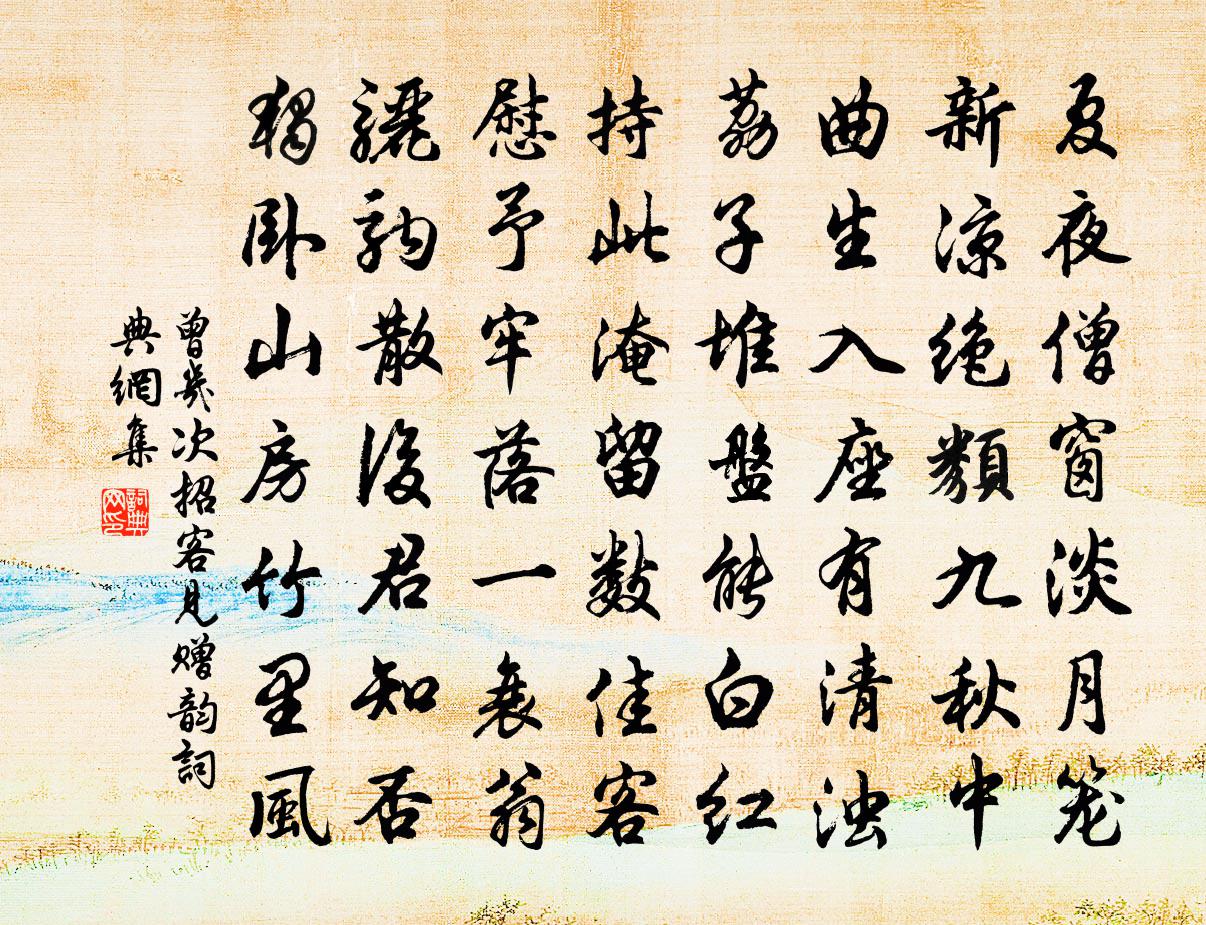 夏夜僧窗淡月笼
新凉绝类九秋中
曲生入座有清浊
荔子堆盤能白红
持此淹留数佳客
慰予牢落一衰翁
骊駒散後君知否
独卧山房竹里風
曾幾次招客見赠韵詞
典網集
詞典
网印